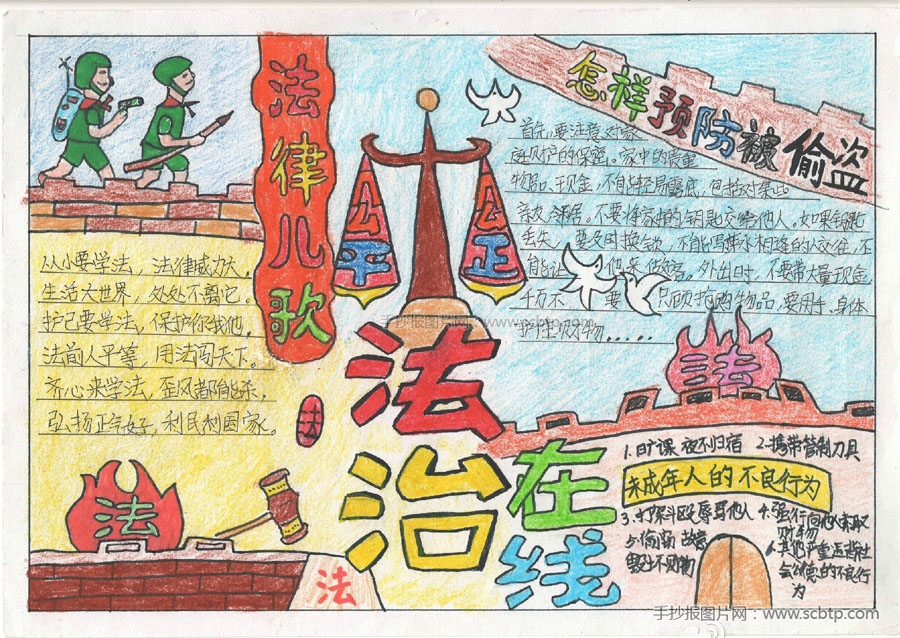 法律儿歌
从小要学法，法律威力大。
生活大世界，处处不离它。
护己要学法，保护你我他，
法前人平等，用法闯天下。
齐心来学法，歪风都能杀，
弘扬正气好，利民利国家。
公平
公正
怎样预防被偷盗
首先，要注意对家
庭财产的保密。家中的贵重
物品、现金，不能轻易露底，包括对某些
亲友、邻居，不要将家中的钥匙交给他人。如果钥匙
丢失，要及时换锁，不能与萍水相逢的人交往，不
能让 他来做客。外出时，不要带大量现金
千万不 要 只顾抢购物品，要用手、身体
护住财物……
手抄报图片网：www.scbtp.com
法治
在线
法
法
法
法
1.旷课、夜不归宿 2.携带管制刀具
未成年人的不良行为
3.打架斗殴、辱骂他人 4.强行向他人索取
财物
5.偷窃、故意
毁坏财物
6.其他严重违背社
会公德的不良行
为
手抄报图片网：www.scbtp.com